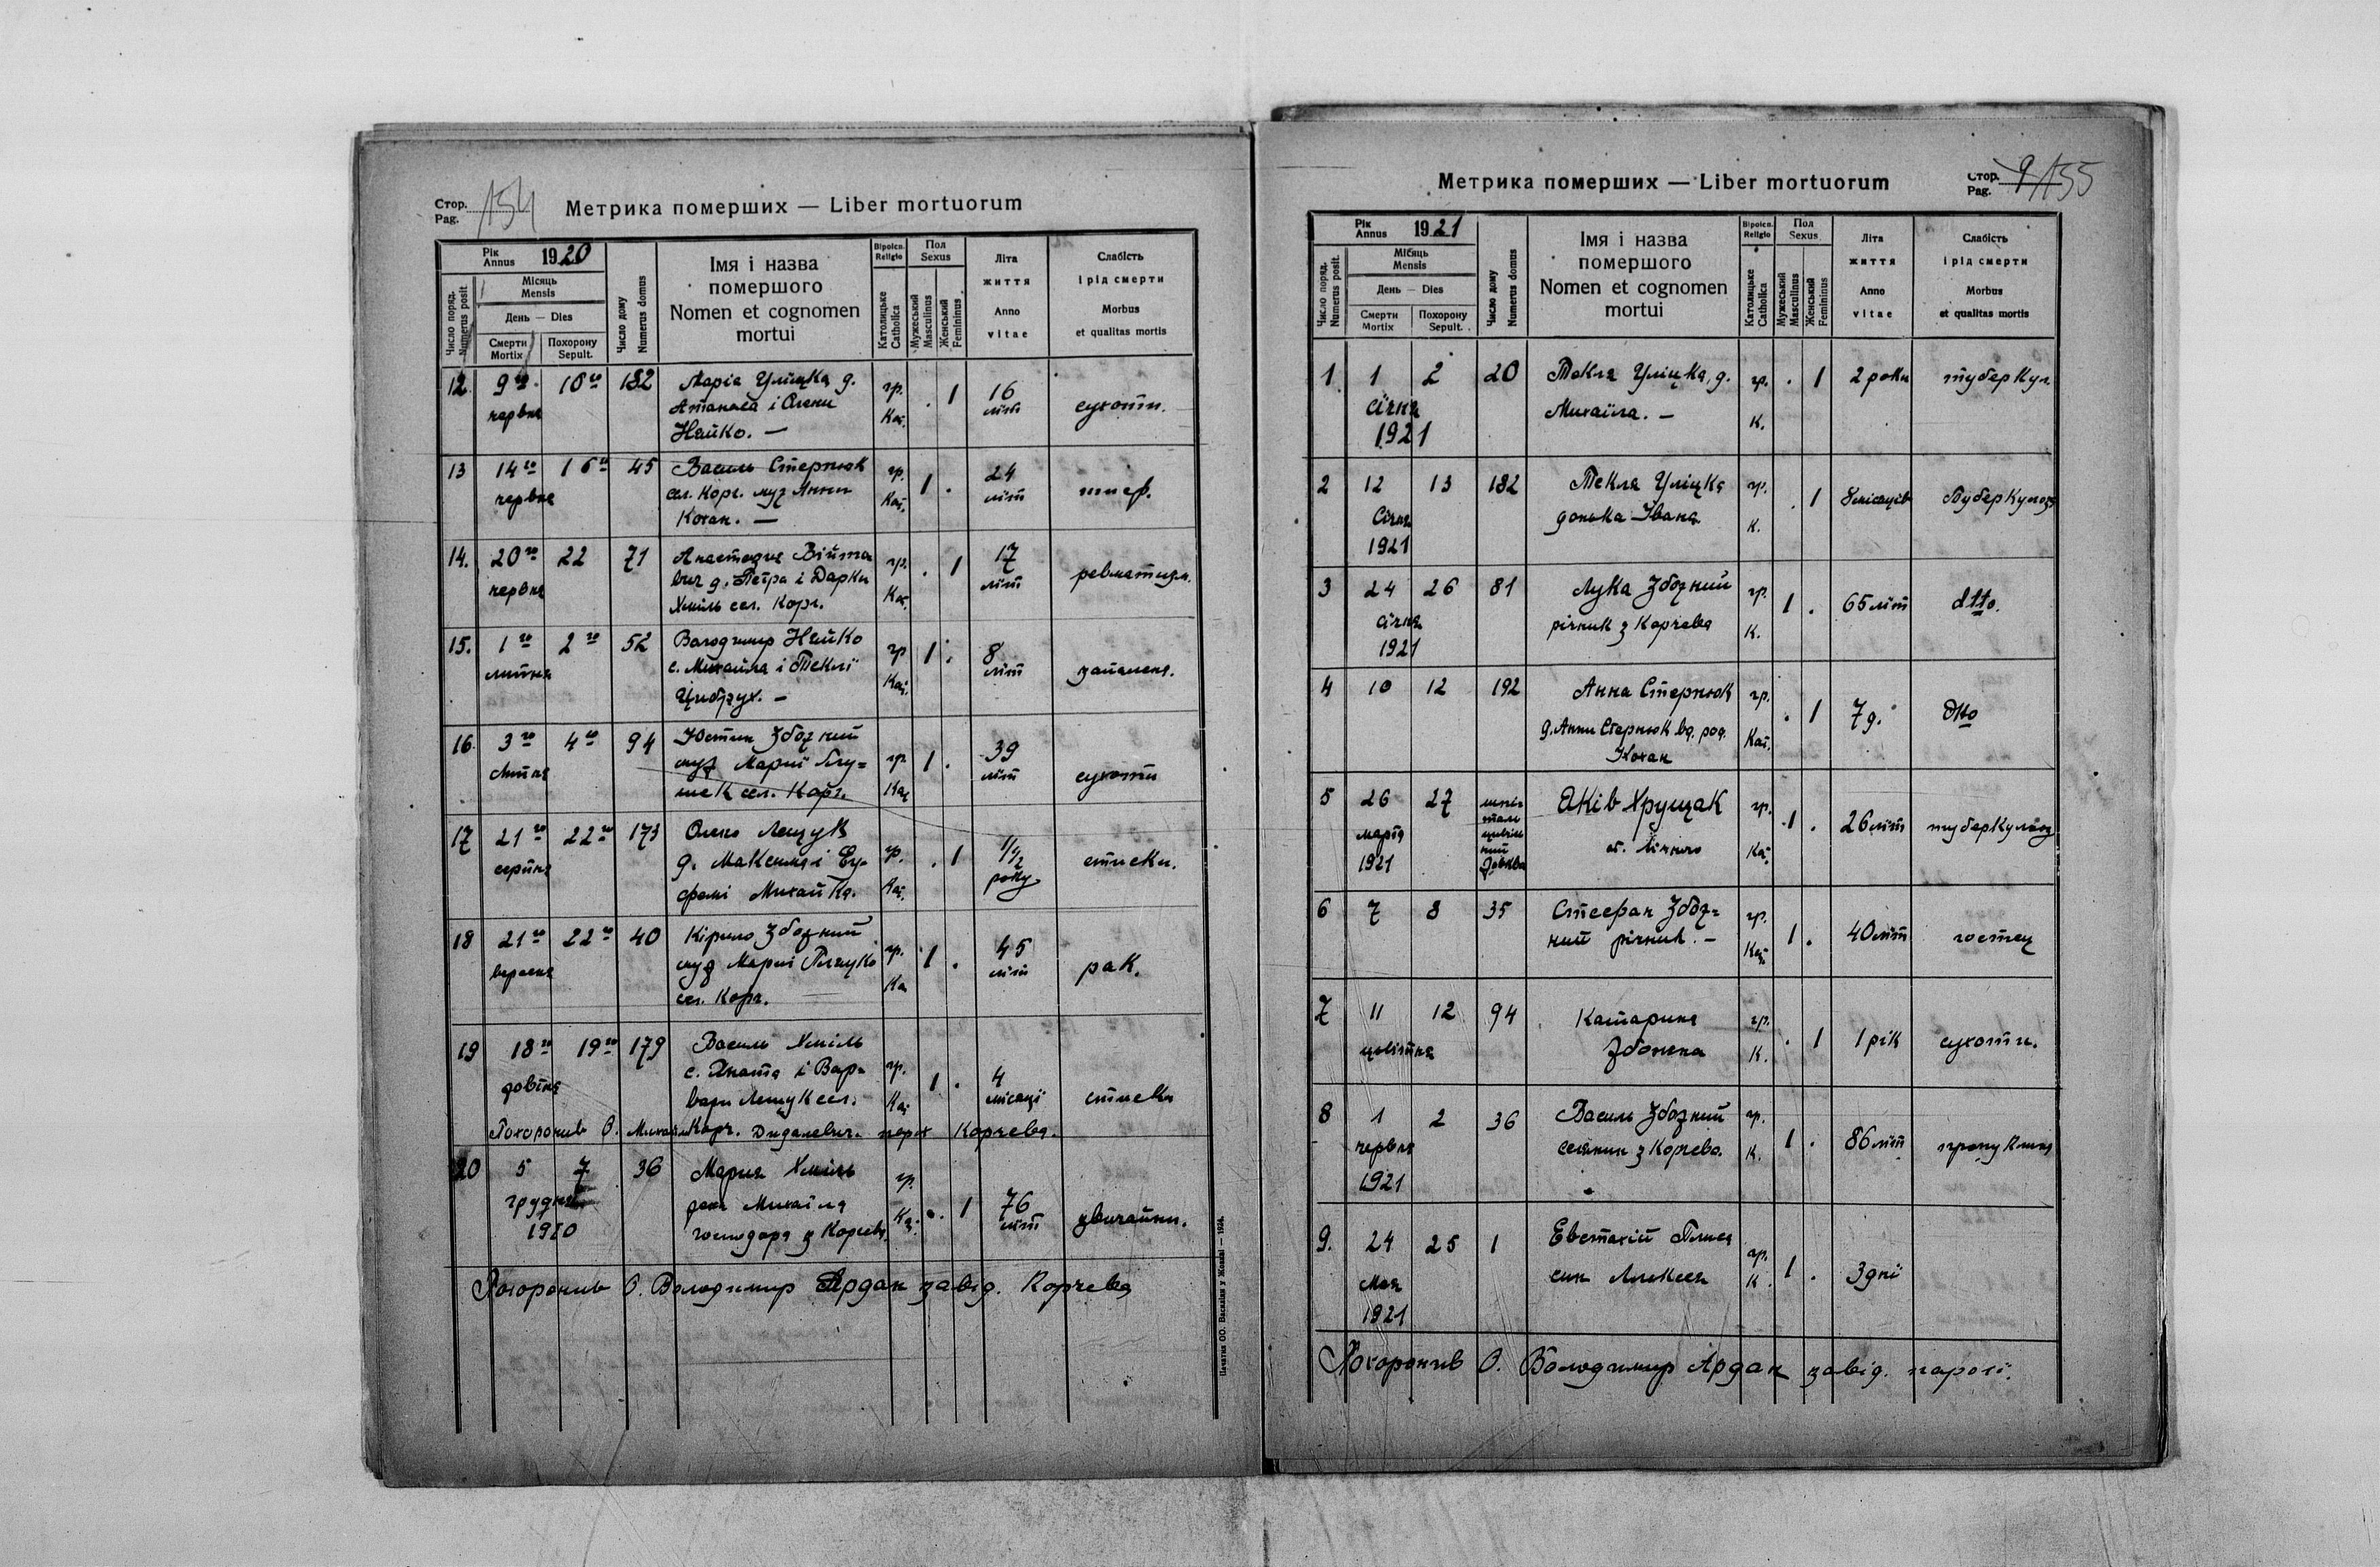 Стор.
Pag. 154
Метрика померших — Liber mortuorum
Рік
Annus 1920
Місяць
Mensis
День — Dies
Число поряд.
Numerus posit.
Смерти
Mortix
Похорону
Sepult.
Число дому
Numerus domus
Імя і назва
помершого
Nomen et cognomen
mortui
Віроісп.
Religio
Католицьке
Catholica
Пол
Sexus
Мужеський
Masculinus
Женський
Femininus
Літа
життя
Anno
vitae
Слабість
і рід смерти
Morbus
et qualitas mortis
12. 9го 10го 182 Марія Уліцка д. гр. . 1 16
червня Атаназа і Олени Кат. літ сухоти.
Нєйко. —
13 14го 16го 45 Василь Стернюк гр. 1 . 24
червня сел. Корч. муж Анни Кат. літ тиф.
Кохан. —
14. 20го 22 71 Анастазия Війто гр. . 1 17
червня вич д. Петра і Дарки Кат. літ ревматизм.
Хміль сел. Корч.
15. 1го 2го 52 Володимир Нєйко гр 1 . 8
липня с. Михайла і Теклї Кат. літ запаленя.
16. 3го 4го 94 Юстин Збожний гр 1 . 39
Липня муж Мариї Глу=
шек сел. Корч. Кат літ сухоти
17 21го 22го 173 Олена Лещук гр. . 1 1/2
серпня д. Максима і Еу- року стиски.
фемі Михайка. Кат.
18 21го 22го 40 Кірило Збожний гр. 1 . 45
вересня муж Мариї літ рак.
сел. Корч. Ка
19 18го 19го 179 Василь Хміль гр. 1 . 4
жовтня с. Игната і Вар- місяці стиски
вари Лещук сел. Кат
Похоронив О. Михайло Корч. Дидалевич. парох Корчева.
20 5 7 36 Мария Хміль гр. . 1 76
грудня жена Михайла Ка. літ звичайна.
1920 господаря з Корчева.
Похоронив О. Володимир Ардан завід. Корчева
Печатня ОО. Василіян у Жовкві — 1926.
Метрика померших — Liber mortuorum
Стор.
Pag. 9/155
Рік
Annus 1921
Місяць
Mensis
День — Dies
Число поряд.
Numerus posit.
Смерти
Mortix
Похорону
Sepult.
Число дому
Numerus domus
Імя і назва
помершого
Nomen et cognomen
mortui
Віроісп.
Religio
Католицьке
Catholica
Пол
Sexus
Мужеський
Masculinus
Женський
Femininus
Літа
життя
Anno
vitae
Слабість
і рід смерти
Morbus
et qualitas mortis
1. 1 2 20 Текля Уліцка, д. гр. . 1 2 роки туберкул.
січня Михайла. — к.
1921
2 12 13 182 Текля Уліцка гр. . 1 8 місяців Туберкульоза
Січня донька Івана к.
1921
3 24 26 81 Лука Збожний гр. 1 . 65 літ dtto.
січня річник з Корчева К.
1921
4 10 12 192 Анна Стернюк гр. . 1 7 д. dtto
д. Анни Стернюк вд. род. Кат.
Кохан
5 26 27 шпі-
таль
цивіль
ний
Жовква Яків Хрущак гр. 1 . 26 літ туберкульоз
марта Кат.
1921
6 7 8 35 Стефан Збож= гр. 1 . 40 літ гостец
ний річник. — Кат.
7 11 12 94 Катарина гр. . 1 1 рік сухоти.
цвітня Збожна К.
8 1 2 36 Василь Збожний гр. 1 . 86 літ
червня селянин з Корчева. К.
1921
9. 24 25 1 Евстахій гр. 1 . 3 дні
Мая син Алексея К.
1921
Похоронив О. Володимир Ардан завід. парохі.